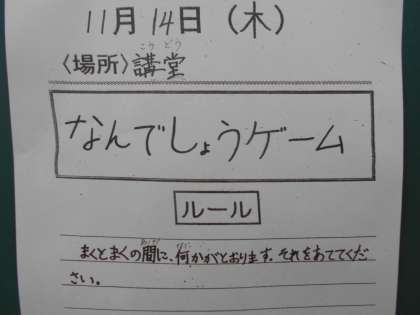 11月14日(木)
〈場所〉講堂
こうどう
なんでしょうゲーム
ルール
まくとまくの間に、何かがとおります。それをあててくだ
さい。